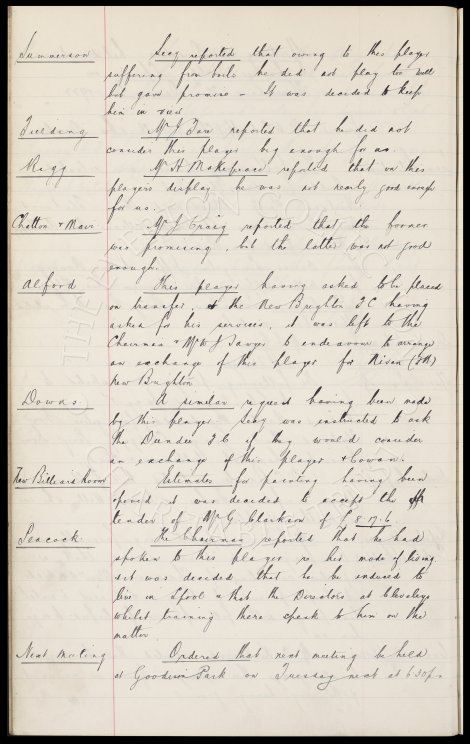 Summerson Secy reported that owing to this player
suffering from boils he did not play too well
but gave promise - It was decided to keep
him in view
Fielding Mr J Fare reported that he did not
consider this player big enough for us
Rigg Mr H Makepeace reported that on this
players display he was not nearly good enough
for us.
Chatton & Mair Mr J Craig reported that the former
was promising, but the latter was not good
enough.
Alford This player having asked to be placed
on transfer, & the New Brighton FC having
asked for his services, it was left to the
Chairman & Mr W J Sawyer to endeavour to arrange
an exchange of this player for Nixon (GK)
New Brighton
Downs A similar request having been made
by this player Secy was instructed to ask
the Dundee FC if they would consider
an exchange of this Player & Cowan.
New Billiard Room Estimates for painting having been
opened it was decided to accept the
tender of Mr G Clarkson of £8.17.6
Peacock The Chairman reported that he had
spoken to this player re his mode of living
& it was decided that he be induced to
live in L'pool & that the Directors at Cleveleys
whilst training there speak to him on the
matter
Next Meeting Ordered that next meeting be held
at Goodison Park on Tuesday next at 6.30 pm